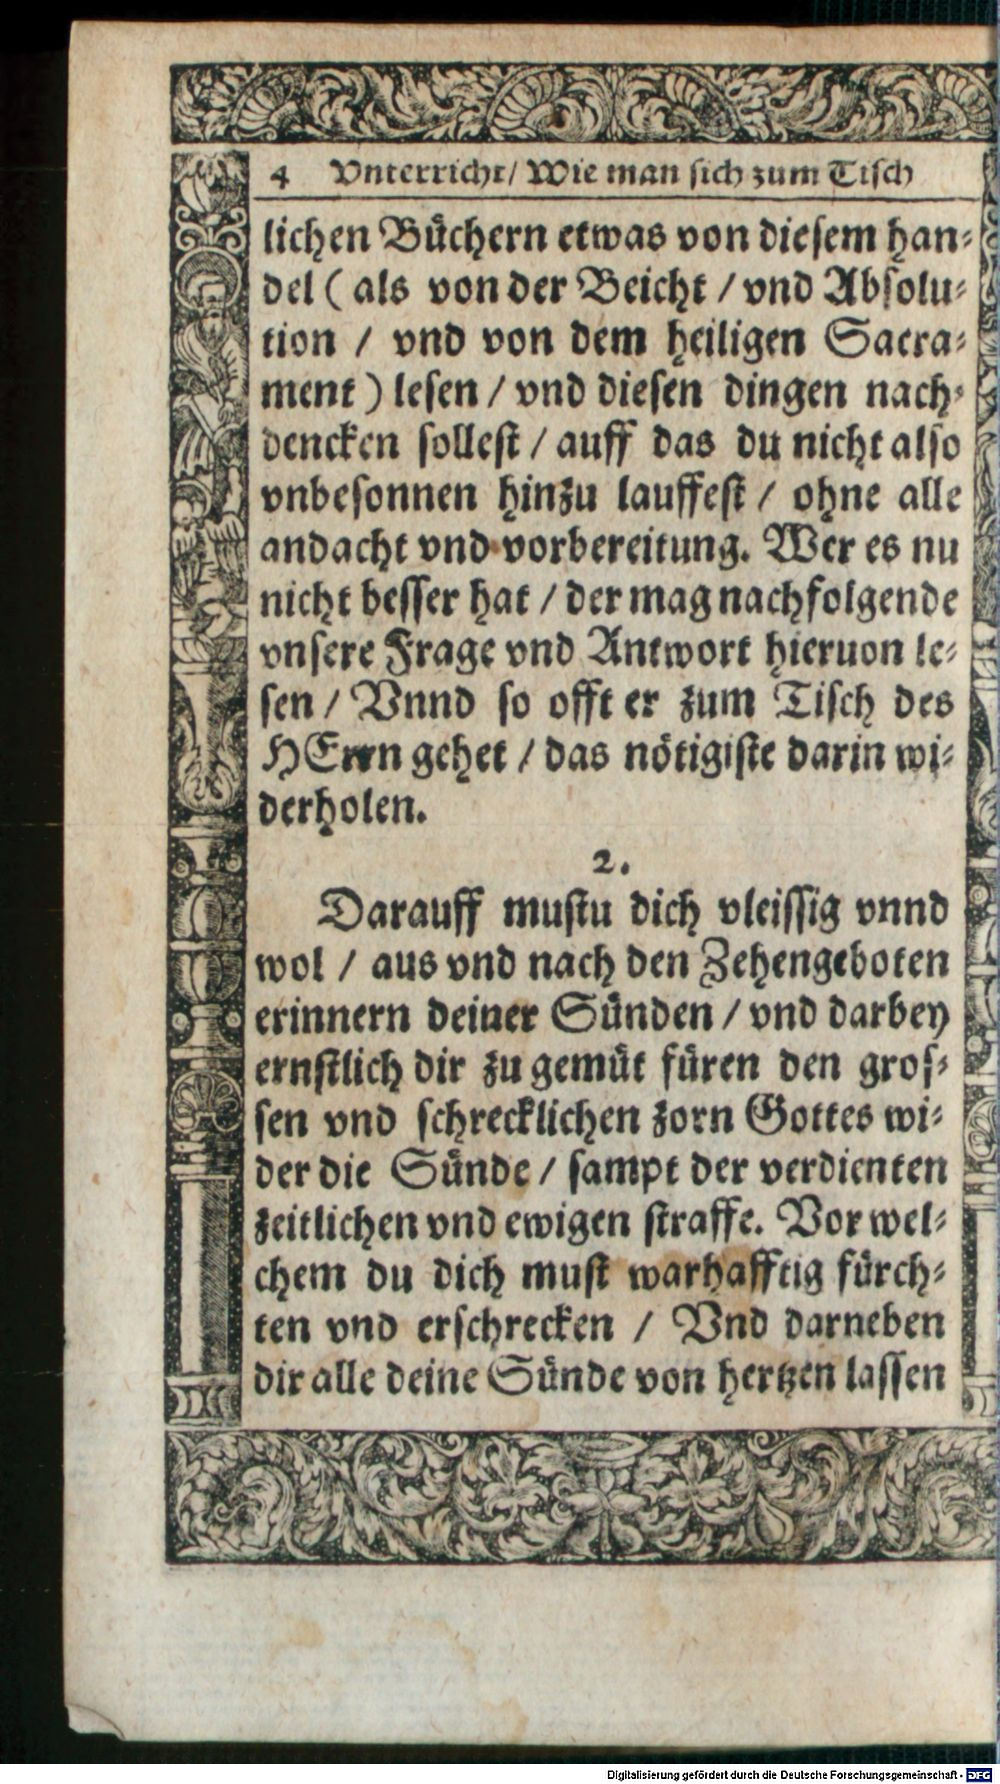 4 Vnterricht/ Wie man sich zum Tisch
lichen Büchern etwas von diesem han-
del ( als von der Beicht / vnd Absolu-
tion / vnd von dem heiligen Sacra-
ment ) lesen / vnd diesen dingen nach-
dencken sollest / auff das du nicht also
vnbesonnen hinzu lauffest / ohne alle
andacht vnd vorbereitung. Wer es nu
nicht besser hat / der mag nachfolgende
vnsere Frage vnd Antwort hieruon le-
sen / Vnnd so offt er zum Tisch des
HErrn gehet / das nötigiste darin wi-
derholen.
2.
Darauff mustu dich vleissig vnnd
wol / aus vnd nach den Zehengeboten
erinnern deiner Sünden / vnd darbey
ernstlich dir zu gemüt füren den gros-
sen vnd schrecklichen zorn Gottes wi-
der die Sünde / sampt der verdienten
zeitlichen vnd ewigen straffe. Vor wel-
chem du dich must warhafftig fürch-
ten vnd erschrecken / Vnd darneben
dir alle deine Sünde von hertzen lassen
Digitalisierung gefördert durch die Deutsche Forschungsgemeinschaft - DFG